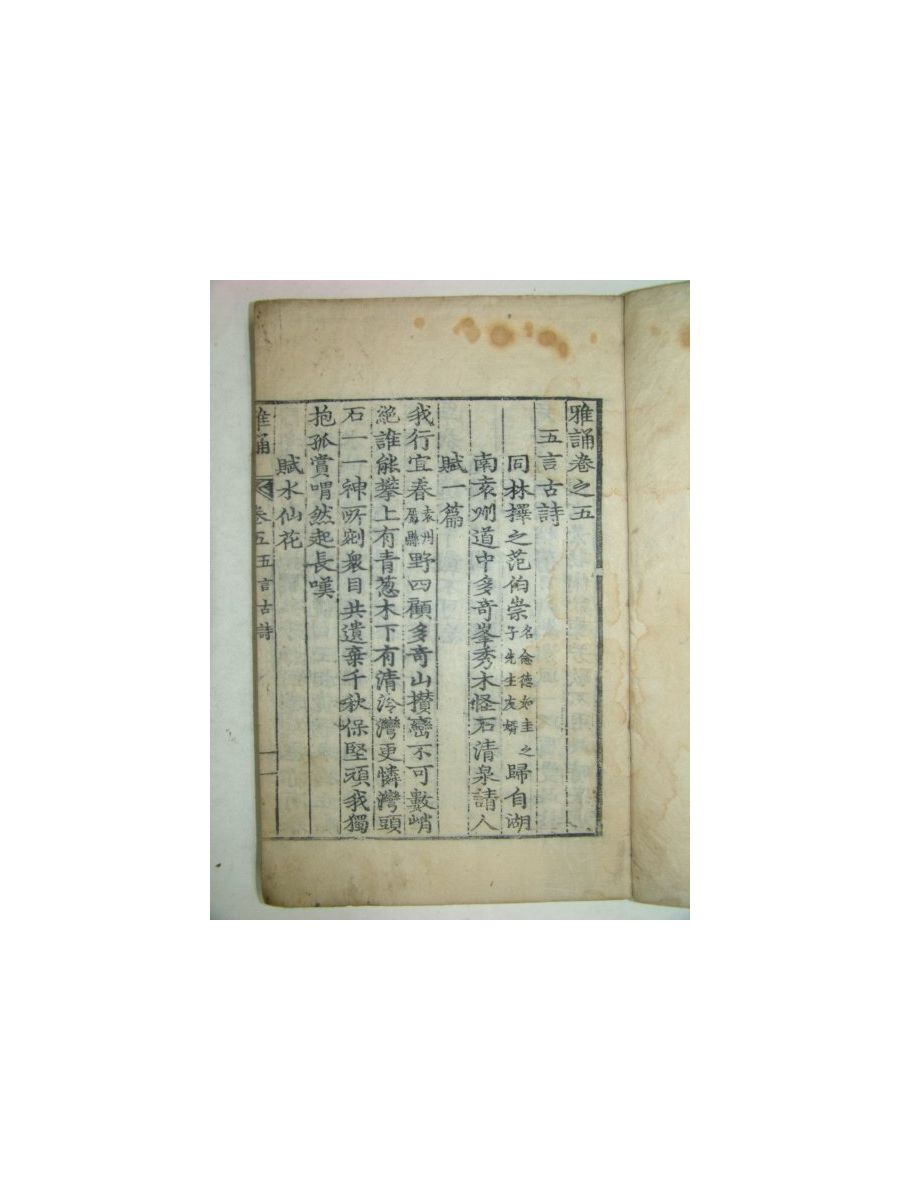 雅誦卷之五
五言古詩
同林擇之范伯崇名念德如圭之子先生友壻歸自湖
南袁州道中多奇峯秀木怪石清泉請人
賦一篇
我行宜春袁州屬縣野四顧多奇山攅巒不可數峭
絶誰能攀上有青葱木下有清泠灣更憐灣頭
石一一神所剜衆目共遺棄千秋保堅頑我獨
抱孤賞喟然起長嘆
賦水仙花
雅誦 卷五 五言古詩 一